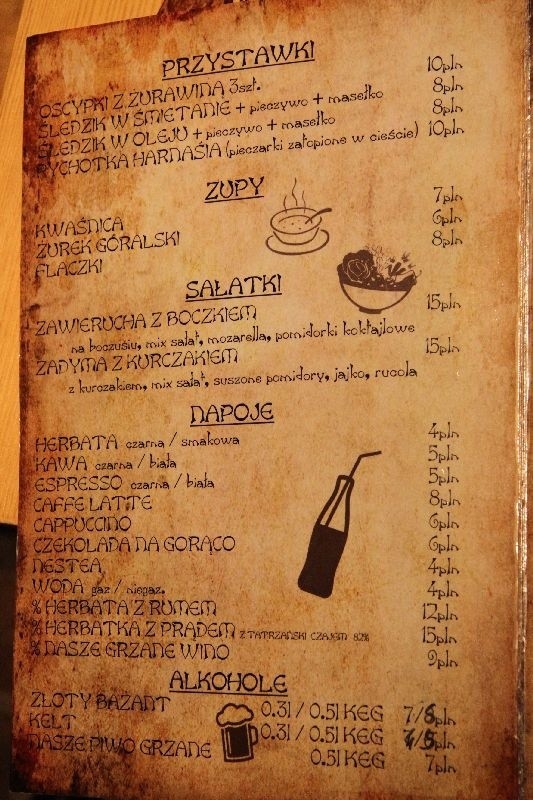 PRZYSTAWKI
OSCYPKI Z ŻURAWINĄ 3szt. 10pln
ŚLEDZIK W ŚMIETANIE + pieczywo + masełko 8pln
ŚLEDZIK W OLEJU + pieczywo + masełko 8pln
PYCHOTKA HARNASIA (pieczarki zatopione w cieście) 10pln
ZUPY
KWAŚNICA 7pln
ŻUREK GÓRALSKI 6pln
FLACZKI 8pln
SAŁATKI
ZAWIERUCHA Z BOCZKIEM 15pln
na boczusiu, mix sałat, mozarella, pomidorki koktajlowe
ZADYMA Z KURCZAKIEM 15pln
z kurczakiem, mix sałat, suszone pomidory, jajko, rucola
NAPOJE
HERBATA czarna / smakowa 4pln
KAWA czarna / biała 5pln
ESPRESSO czarna / biała 5pln
CAFFE LATTE 8pln
CAPPUCCINO 6pln
CZEKOLADA NA GORĄCO 6pln
NESTEA 4pln
WODA gaz / niegaz. 4pln
% HERBATA Z RUMEM 12pln
% HERBATKA Z PRĄDEM Z TATRZAŃSKI CZAJEM 82% 15pln
% NASZE GRZANE WINO 9pln
ALKOHOLE
ZŁOTY BAŻANT 0.3l / 0.5l KEG 7/8pln
KELT 0.3l / 0.5l KEG pln
NASZE PIWO GRZANE 0.5l KEG 7pln